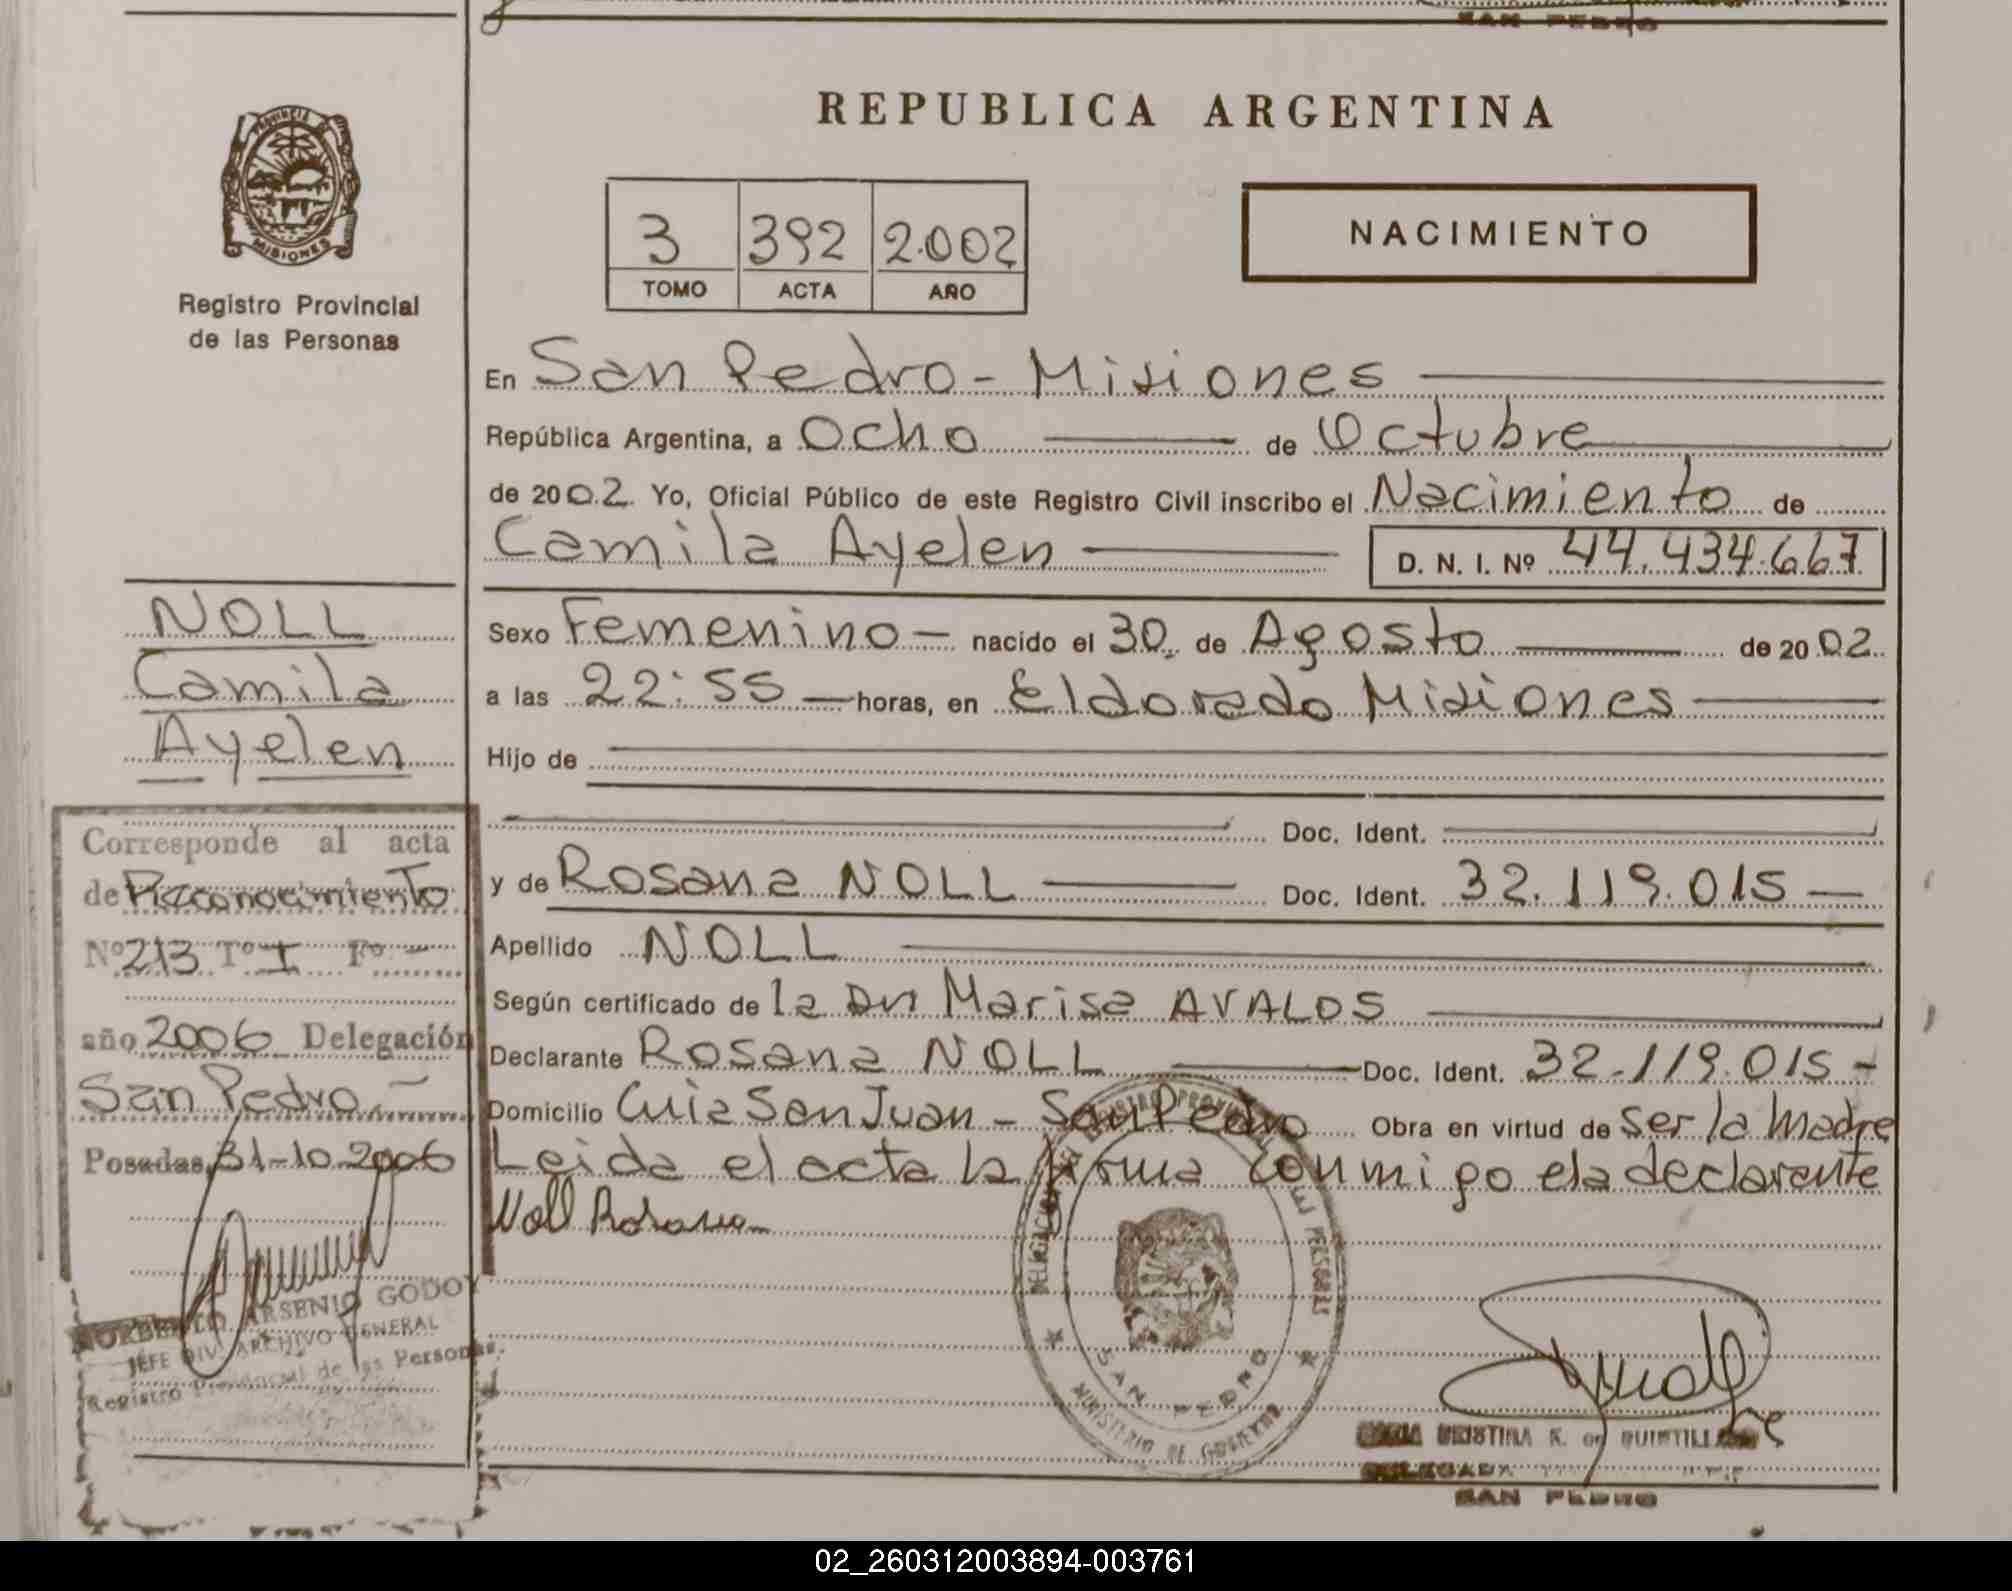 SAN PEDRO
PROVINCIA DE
MISIONES
Registro Provincial
de las Personas
REPUBLICA ARGENTINA
3 392 2.002
TOMO ACTA AÑO
NACIMIENTO
En San Pedro - Misiones
República Argentina, a Ocho de Octubre
de 2002. Yo, Oficial Público de este Registro Civil inscribo el Nacimiento de
Camila Ayelen D. N. I. Nº 44.434.667
Sexo Femenino - nacido el 30 de Agosto de 2002
a las 22:55 horas, en Eldorado Misiones
Hijo de
Doc. Ident.
y de Rosana NOLL Doc. Ident. 32.119.015 -
Apellido NOLL
Según certificado de la Dra Marisa AVALOS
Declarante Rosana NOLL Doc. Ident. 32.119.015 -
Domicilio Cruce San Juan - San Pedro Obra en virtud de ser la madre
Leida el acta la firma conmigo el la declarante
Noll Rosana
NOLL
Camila
Ayelen
Corresponde al acta
de Reconocimiento
Nº 213 Tº I Fº -
año 2006 Delegación
San Pedro -
Posadas, 31-10-2006
NORBERTO ARSENIO GODOY
JEFE DIV. ARCHIVO GENERAL
Registro Provincial de las Personas
SAN PEDRO
MINISTERIO DE GOBIERNO
CRISTINA R. de
DELEGADA
SAN PEDRO
02_260312003894-003761